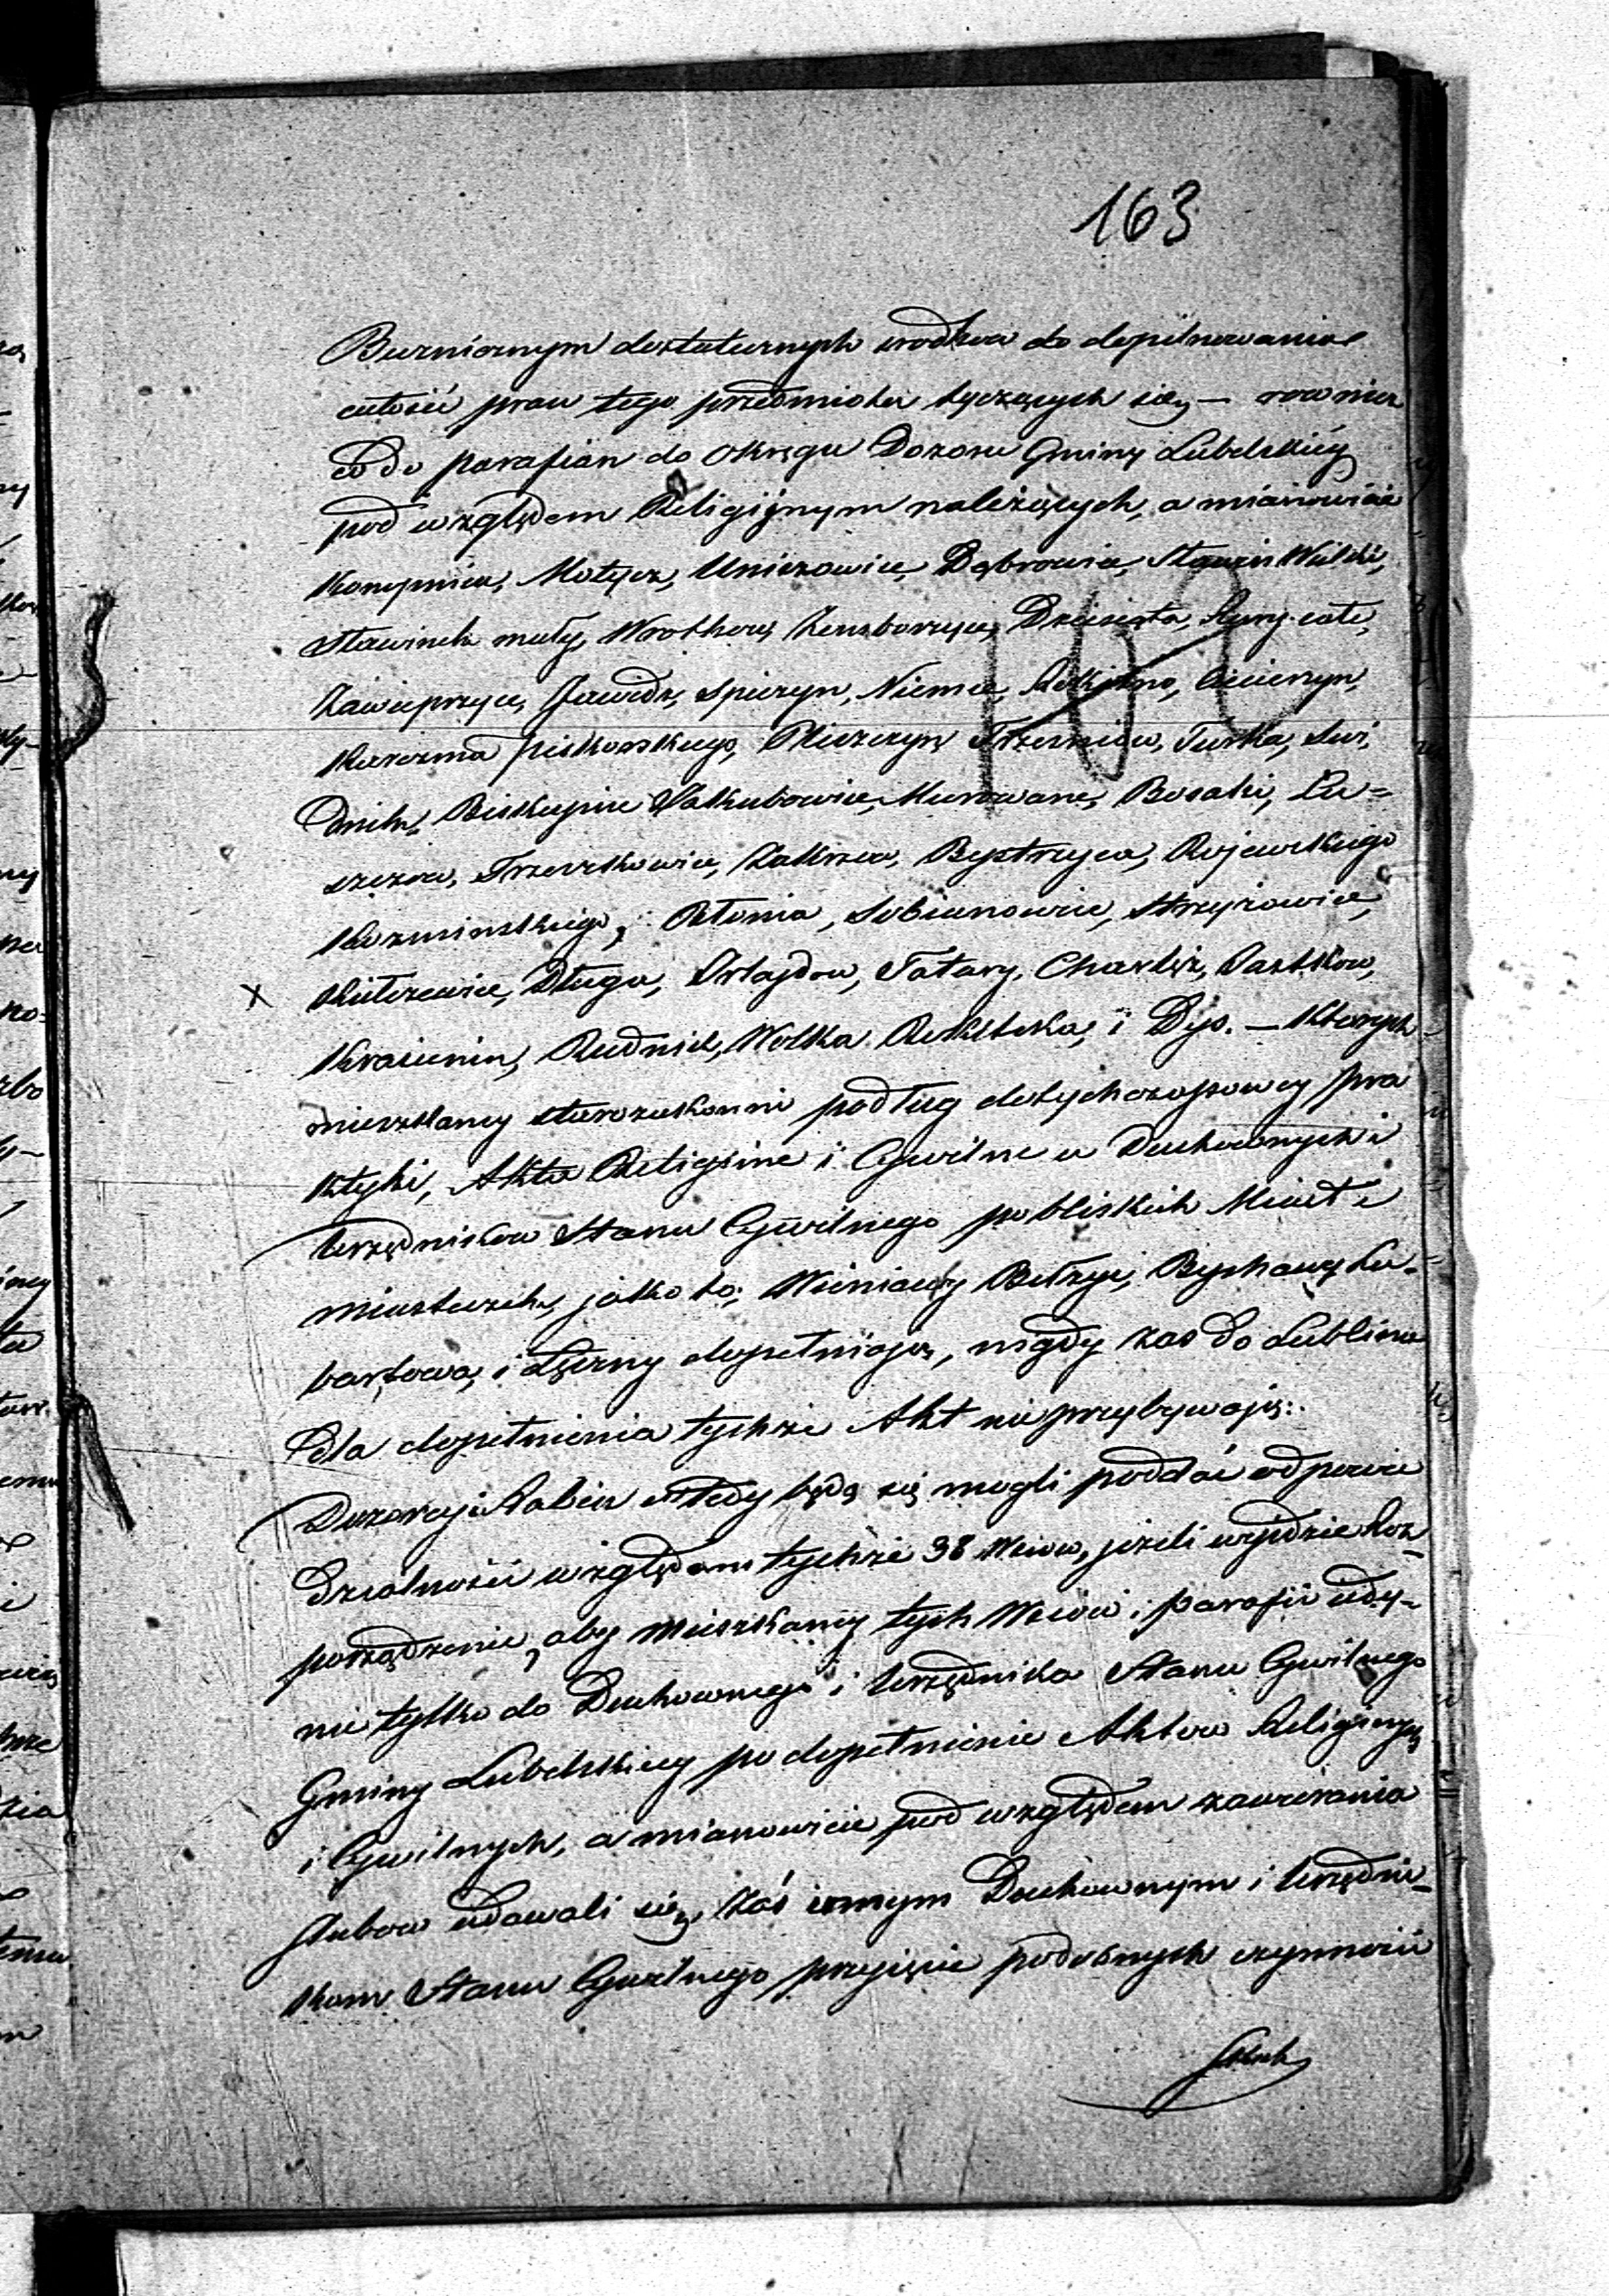 163
Burniczym dostatecznych srodkow do dopilnowania
całości praw tego przedmiotu tyczących się, — rownież
co do parafian do okręgu Dozoru Gminy Lubelskiey
pod względem Religijnym należących, a mianowicie
Konopnica, Motycz, Uniszowice, Dąbrowica, Sławin Wielki,
Sławinek mały, Wrotkow, Zemborzyce, Dziesiąta, Rury całe,
Zawieprzyce, Jawidz, Spiczyn, Niemce, Ciecierzyn,
Karczma piskorskiego, Mełgiew Trzeszkow, Turka, Swi„
dnik, Biskupice Jakubowice, Murowane, Bosaki, Lu=
szczow, Trzeszkowice, Zakrzow, Bystrzyca, Rojewskiego
Kozminskiego, Płonia, Sobianowice, Strzyżowice,
x Kliszewice, Długa, Ostajdow, Tatary, Charlęż, Pastkow,
Krasienin, Rudnik, Wolka Rokitska, i Dys. — Ktorych
mieszkancy starozakonni podług dotychczasowey pra
ktyki, Akta Religijne i Cywilne u Duchownych i
Urzędnikow Stanu Cywilnego pobliskich Miast i
miasteczek, jako to; Wieniawy Bełżyc, Bychawy Lu=
bartowa, i Łęczny dopełniają, nigdy zas do Lublina
dla dopełnienia tychże Akt nie przybywają:
Dozory i Rabin wtedy będą się mogli poddać odpowie
dzialności względem tychże 38 Wsiow, jeżeli wyjdzie Roz
porządzenie, aby Mieszkancy tych Wsiow i parafii udy-
nie tylko do Duchownego i Urzędnika Stanu Cywilnego
Gminy Lubelskiey po dopełnienie Aktow Religijnych
i Cywilnych, a mianowicie pod względem zawierania
slubow udawali się, Zaś innym Duchownym i Urzędni-
kom Stanu Cywilnego przyjęcie podobnych czynności